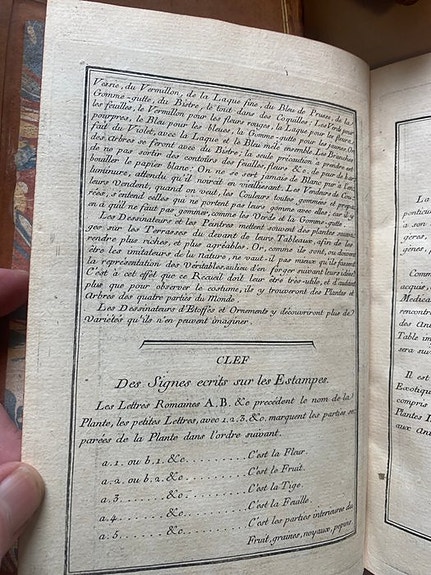 Vessie, du Vermillon, de la Laque fine, du Bleu de Prusse, de la
Gomme-gutte, du Bistre, le tout dans des Coquilles; Les Verds pour
les feuilles, le Vermillon pour les fleurs rouges, la Laque pour les fleurs
pourpres, le Bleu pour les bleues, la Gomme-gutte pour les jaunes. On
fait du Violet, avec la Laque et le Bleu mêlé ensemble. Les Branches
des arbres se feront avec du Bistre; la seule précaution à prendre est
de ne pas sortir des contours des feuilles, fleurs &c. de peur de bar-
bouiller le papier blanc; On ne se sert jamais de Blanc pur à l'en-
luminure, attendu qu'il noircit en vieillissant. Les Vendeurs de Cou-
leurs Vendent, quand on veut, les Couleurs toutes gommées et prépa-
rées, s'entend celles qui ne portent pas leurs gomme avec elles, car il y
en a qu'il ne faut pas gommer, comme les Verds et la Gomme-gutte.
Les Dessinateurs et les Peintres mettent souvent des plantes étran-
ges sur les Terrasses du devant de leurs Tableaux, afin de les
rendre plus riches, et plus agréables; Or, comme ils sont, ou doivent
être les imitateurs de la nature, ne vaut-il pas mieux qu'ils fassent
la représentation des Véritables, au lieu d'en forger suivant leurs idées;
C'est à cet effet que ce Recueil doit leur être très-utile, et d'autant
plus que pour observer le costume, ils y trouveront des Plantes et
Arbres des quatre parties du Monde.
Les Dessinateurs d'Etoffes et Ornements y découvriront plus de
Variétés qu'ils n'en peuvent imaginer.
CLEF
Des Signes ecrits sur les Estampes.
Les Lettres Romaines A, B, &c précèdent le nom de la
Plante, les petites Lettres, avec 1.2.3.&c. marquent les parties sé-
parées de la Plante dans l'ordre suivant.
a.1. ou b.1. &c. C'est la Fleur.
a.2. ou b.2. &c. C'est le Fruit.
a.3. &c. C'est la Tige.
a.4. &c. C'est la Feuille.
a.5. &c. C'est les parties interieures du
Fruit, graines, noyaux, pepins.
La
ponticu
à son
gères,
génes,
Comm
acquis,
Medica
rencontr
des An
Table im
sera suiv
Il est
Exotique
compris
Plantes I
aux Ant